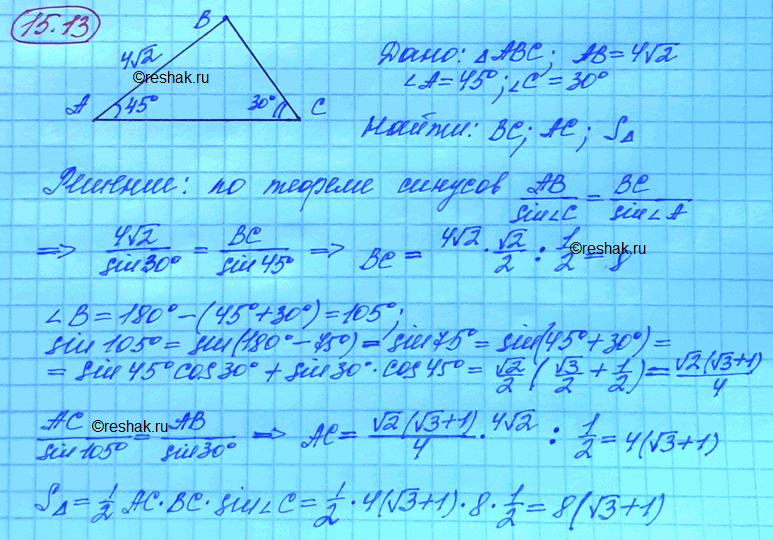 15.13
B
4√2
©reshak.ru
A 45° 30° C
Дано: △ABC; AB=4√2
∠A=45°; ∠C=30°
Найти: BC; AC; S△
Решение: по теореме синусов AB/sin∠C = BC/sin∠A
=> 4√2/sin30° = BC/sin45° => BC = 4√2·√2/2 : 1/2 = 8
©reshak.ru
∠B=180°-(45°+30°)=105°;
sin105°=sin(180°-75°)=sin75°=sin(45°+30°)=
=sin45°cos30°+sin30°·cos45°=√2/2(√3/2+1/2)=√2(√3+1)/4
©reshak.ru
AC/sin105° = AB/sin30° => AC= √2(√3+1)/4 · 4√2 : 1/2 = 4(√3+1)
S△=1/2 AC·BC·sin∠C=1/2·4(√3+1)·8·1/2=8(√3+1)